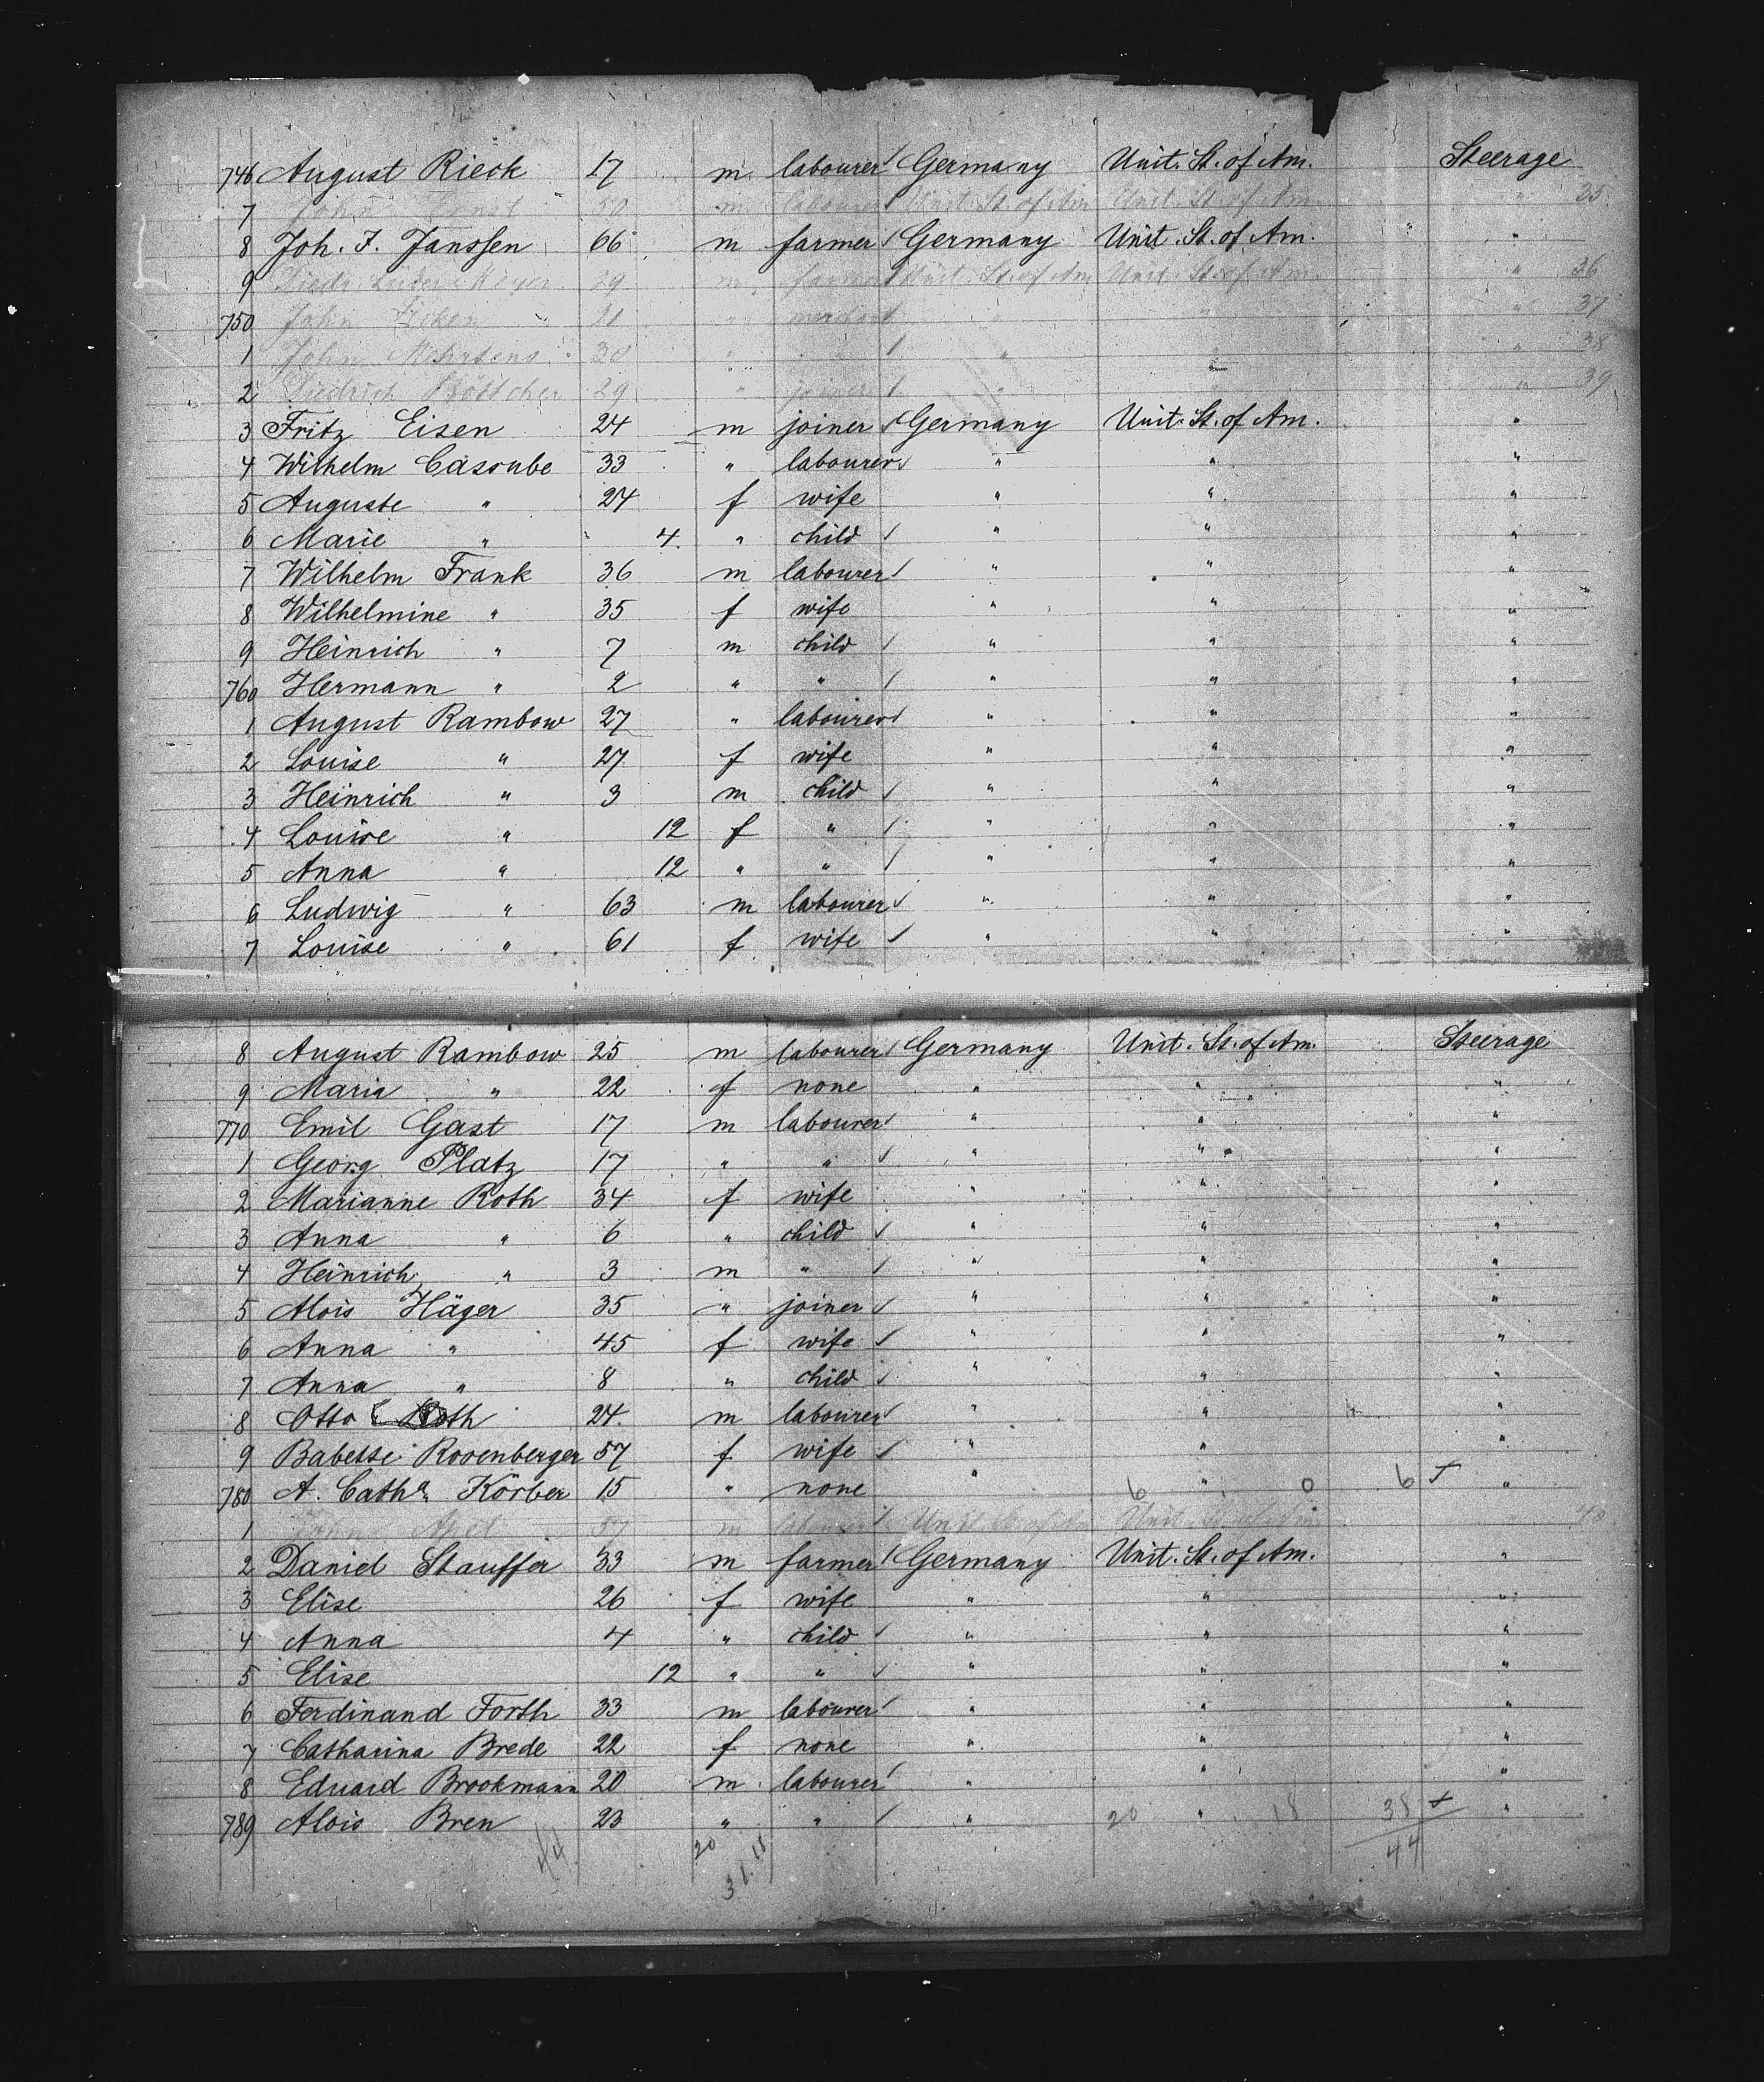 746 August Rieck 17 m labourer Germany Unit. St. of Am. Steerage
7 John Ernst 50 m labourer Unit. St. of Am Unit. St. of Am. " 35
8 Joh. F. Janssen 66 m farmer Germany Unit. St. of Am. "
9 Diedr. Lüder Meyer 29 m farmer Unit. St. of Am Unit. St. of Am. " 36
750 John Ficken 21 " merchant " " " 37
1 John Mehrtens 30 " " " " " 38
2 Diedrich Böttcher 29 " joiner " " " 39
3 Fritz Eisen 24 m joiner Germany Unit. St. of Am. "
4 Wilhelm Casoube 33 " labourer " " "
5 Auguste " 24 f wife " " "
6 Marie " 4 " child " " "
7 Wilhelm Frank 36 m labourer " " "
8 Wilhelmine " 35 f wife " " "
9 Heinrich " 7 m child " " "
760 Hermann " 2 " " " " "
1 August Rambow 27 " labourer " " "
2 Louise " 27 f wife " " "
3 Heinrich " 3 m child " " "
4 Louise " 12 f " " " "
5 Anna " 12 " " " " "
6 Ludwig " 63 m labourer " " "
7 Louise " 61 f wife " " "
8 August Rambow 25 m labourer Germany Unit. St. of Am. Steerage
9 Maria " 22 f none " " "
770 Emil Gast 17 m labourer " " "
1 Georg Platz 17 " " " " "
2 Marianne Roth 34 f wife " " "
3 Anna " 6 " child " " "
4 Heinrich " 3 m " " " "
5 Alois Häger 35 " joiner " " "
6 Anna " 45 f wife " " "
7 Anna " 8 " child " " "
8 Otto Roth 24 m labourer " " "
9 Babette Rosenberger 57 f wife " " "
780 A. Catha. Körber 15 " none " 6 " 0 6 "
1 John Apel 57 m labourer Unit St. of Am Unit. St. of Am. " 40
2 Daniel Stauffer 33 m farmer Germany Unit. St. of Am. "
3 Elise 26 f wife " " "
4 Anna 4 " child " " "
5 Elise 12 " " " " "
6 Ferdinand Forth 33 m labourer " " "
7 Catharina Brede 22 f none " " "
8 Eduard Brookmann 20 m labourer " " "
789 Alois Bren 23 " " " 20 " 18 38 "
44 20 31.18 44